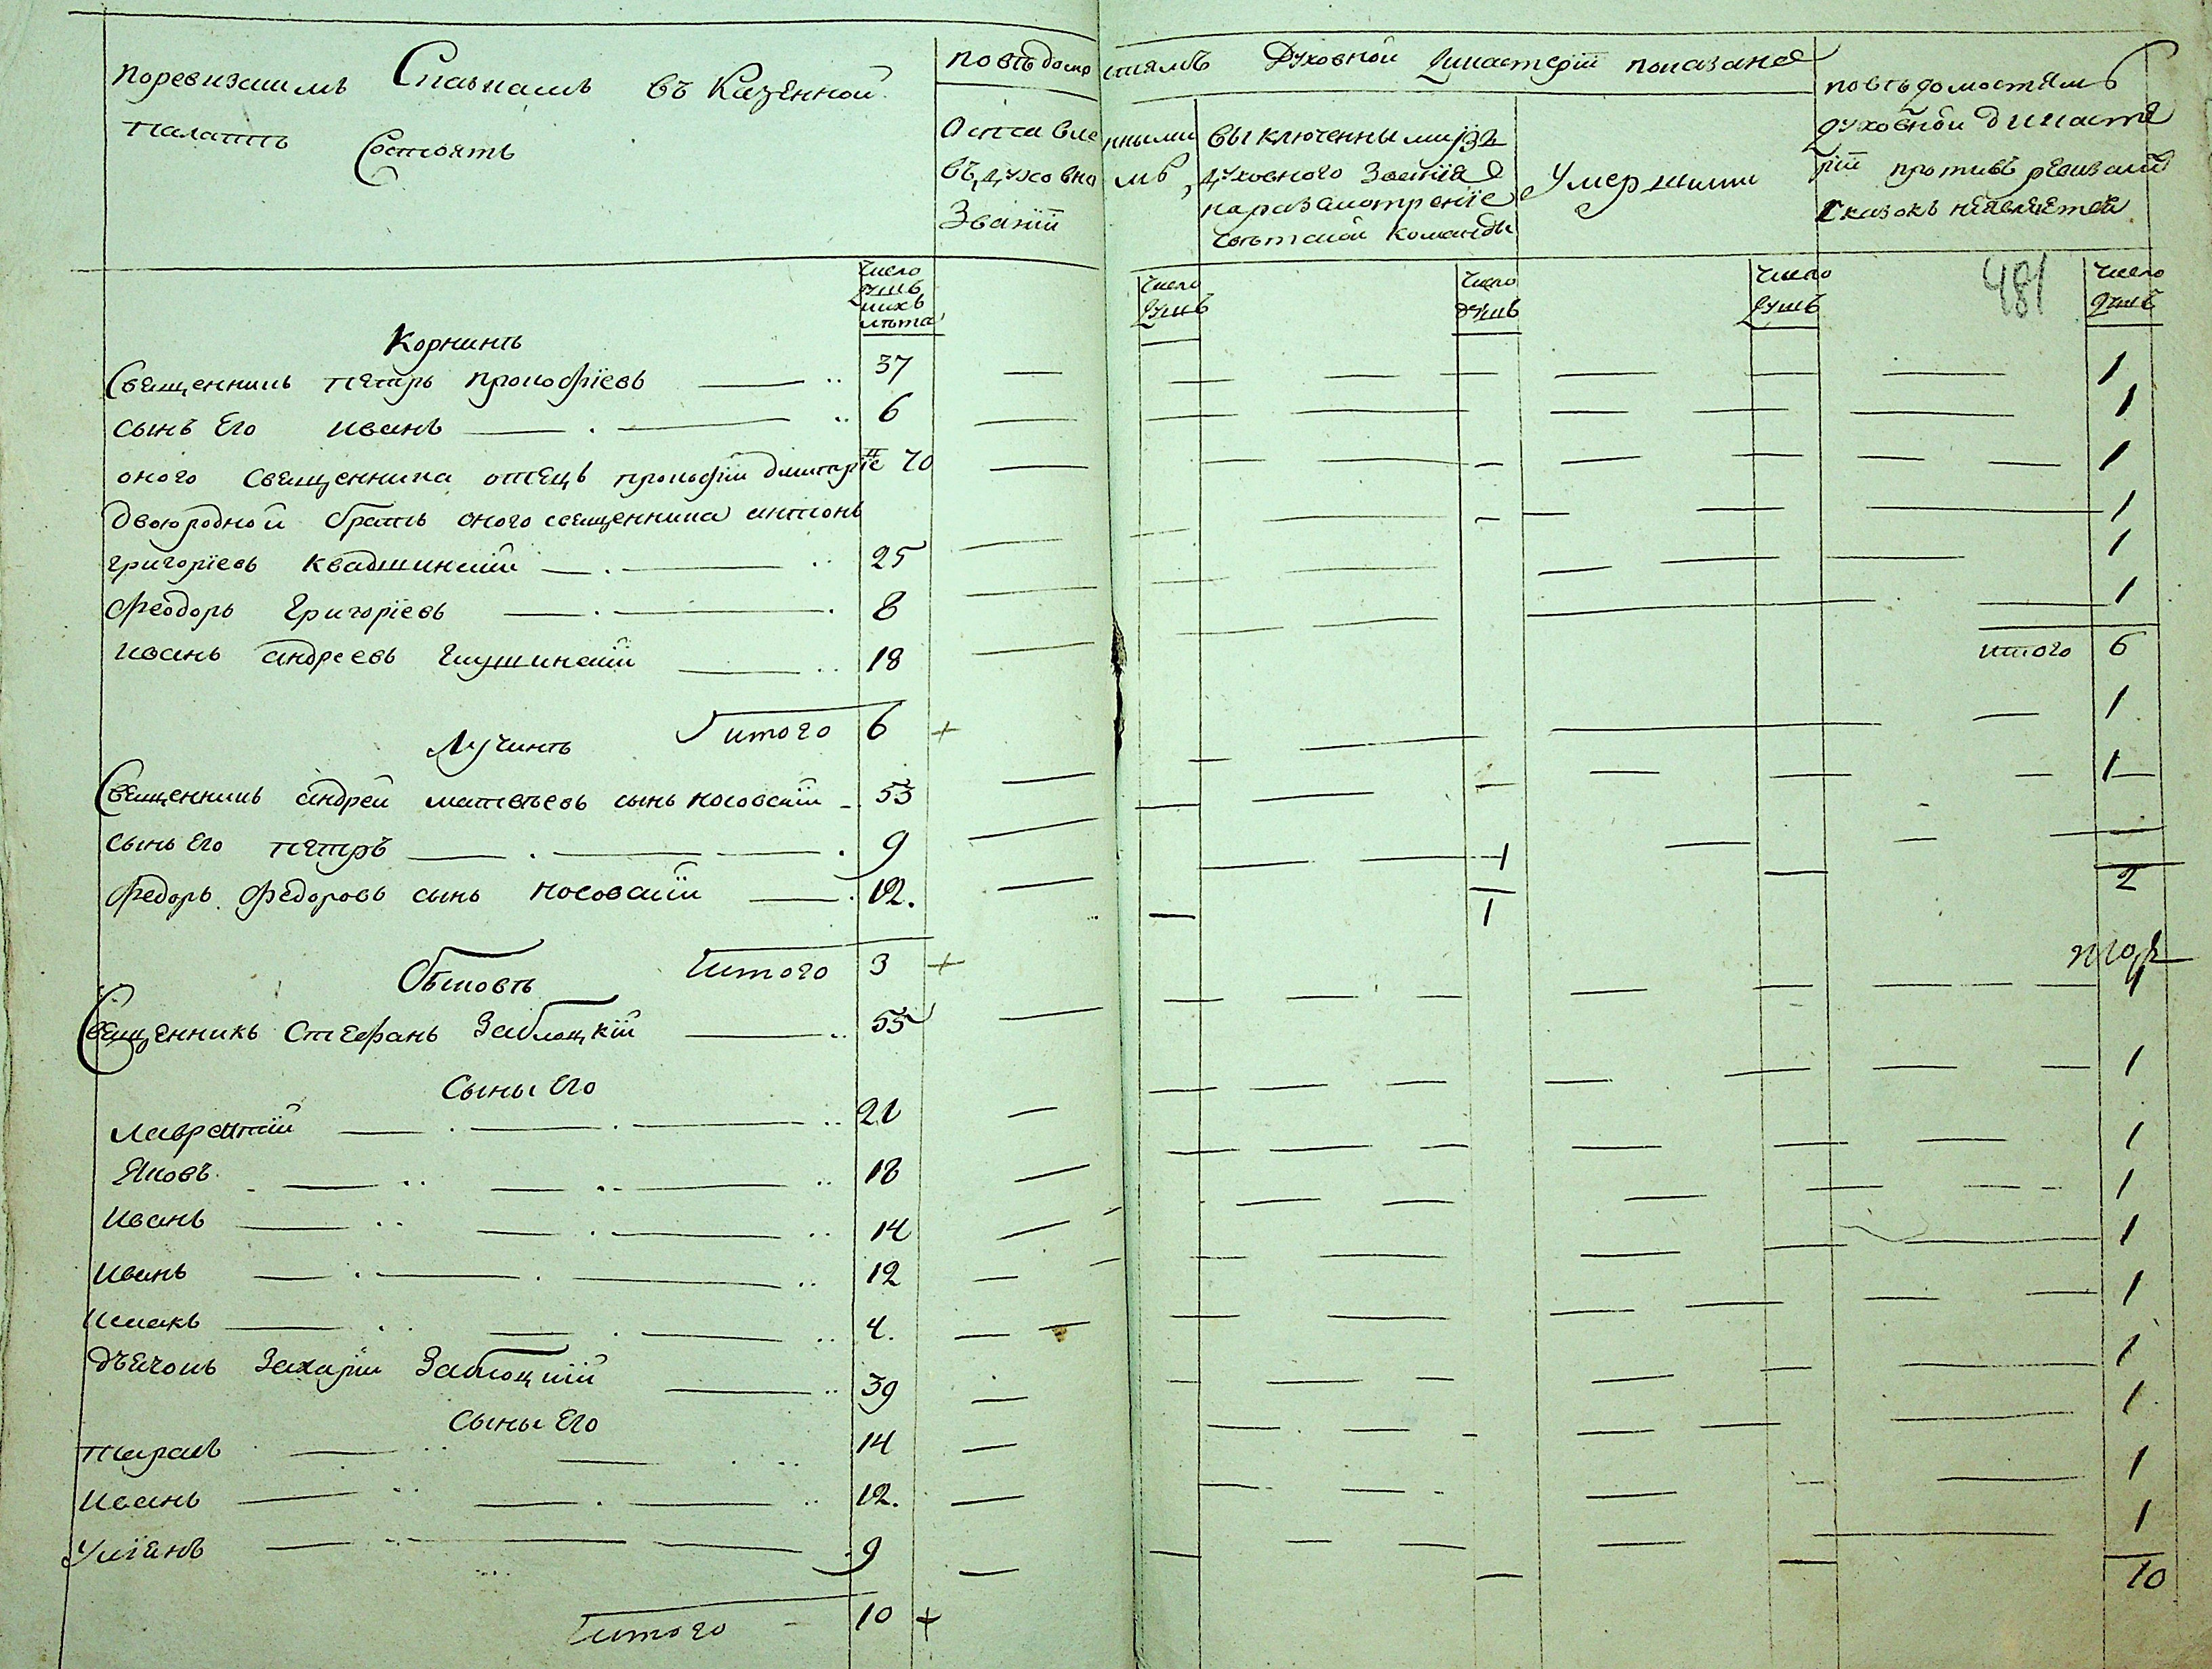 поревизскимъ Сказкамъ въ Казенной
палатѣ Состоятъ
по вѣдомостямъ Духовной Дикастерїи показано
Оставленными въ духовномъ Званїи
выключенными изъ духовного Званїя на разсмотренїе свѣтской команды
Умершими
по вѣдомостямъ духовной дикастерїи противъ ревизскихъ сказокъ неявляется
число душъ ихъ лѣта
число душъ
число душъ
число душъ
481
число душъ
Корнинѣ
Священникъ петръ прокофїевъ 37 1
сынъ его иванъ 6 1
оного священника отецъ прокофїй дмитрїе 70 1
двоюродной братъ оного священника антонъ 1
григорїевъ квадшинскїй 25 1
феодоръ григорїевъ 8 1
иванъ андреевъ глушинскїй 18
итого 6
итого 6 +
Лучинѣ
Священникъ андрей матвѣевъ сынъ носовскїй 53 1
сынъ его петръ 9 1
федоръ федоровъ сынъ носовскїй 12. 1
1 2
итого 3 +
Священникъ Стефанъ Заблоцкїй 55 1
Сыны его
лаврентїй 21 1
Яковъ 18 1
иванъ 14 1
иванъ 12 1
исаакъ 4. 1
дьячокъ Захарїй Заблоцкїй 39 1
Сыны его
тарасъ 14 1
иванъ 12. 1
улїянъ 9 1
10
итого 10 +